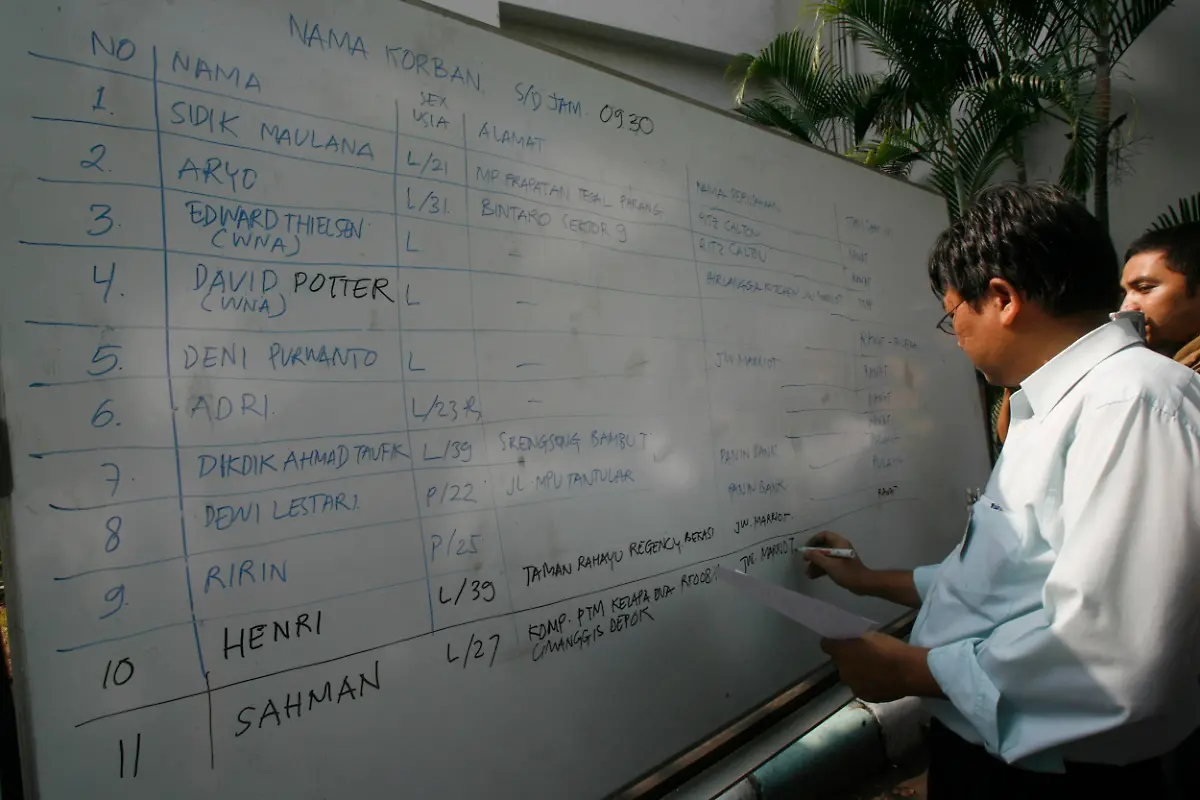 NAMA KORBAN. S/D JAM. 09.30
NO NAMA SEX USIA ALAMAT
1. SIDIK MAULANA L/21 MP. PRAPATAN TEGAL PARANG RITZ CALTON RAWAT
2. ARYO L/31. BINTARO SEKTOR 9 RITZ CALTON RAWAT
3. EDWARD THIELSEN L - AIRLANGGA KITCHEN JW MARRIOT
(WNA)
4. DAVID POTTER L -
(WNA)
5. DENI PURWANTO L - JW. MARRIOT RAWAT
6. ADRI. L/23 - RAWAT
7. DIKDIK AHMAD TAUFIK L/39 SRENGSENG BAMBUT PANIN BANK
8 DEWI LESTARI. P/22 JL. MPU TANTULAR PANIN BANK
9. RIRIN P/25 RAWAT
10 HENRI L/39 TAMAN RAHAYU REGENCY, BEKASI JW. MARRIOT
11 SAHMAN L/27 KOMP. PTM KELAPA DUA JW. MARRIOT
CIMANGGIS DEPOK